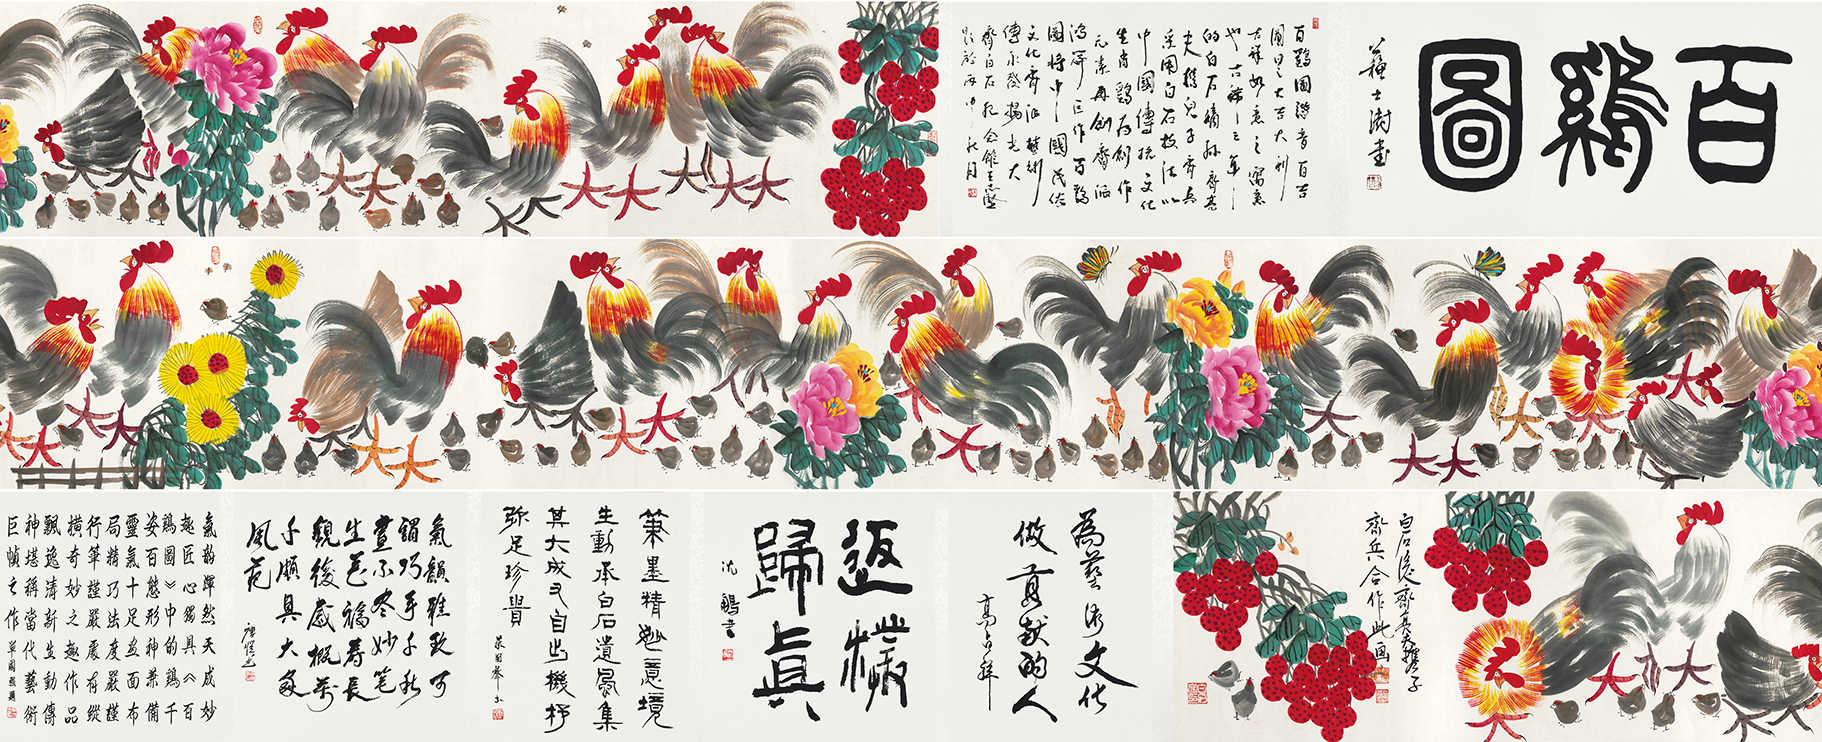 百鷄圖
蘇士澍書
百鷄圖谐音百吉
圖曰之大吉大利
吉祥如意之寓意
也古稀之年
的白石嫡孫齊
夫攜兒子齊兵
采用白石技法以
中國傳統文化
生肖鷄为創作
元素再創齊派
鴻篇巨作百鷄
圖將中國民俗
文化齊派藝術
傳承發揚光大
齊白石紀念館王志
題於丙申秋月
白石後 齊 夫攜子
齊兵合作此画
為藝術文化
做貢献的人
高占祥
返樸
歸真
沈鵬書
筆墨精妙意境
生動承白石遺風集
其大成又自出機杼
弥足珍貴
氣韻雅致可
謂巧手千秋
畫不尽妙筆
生花福壽長
觀後感概万
千頗具大家
風范
氣韵渾然天成妙
趣匠心獨具《百
鷄圖》中的鷄千
姿百態形神兼備
靈氣十足画面布
局精巧法度嚴謹
行筆謹嚴有縱
橫奇妙之趣作品
飄逸清新生動傳
神堪稱當代藝術
巨幀之作 單國強題